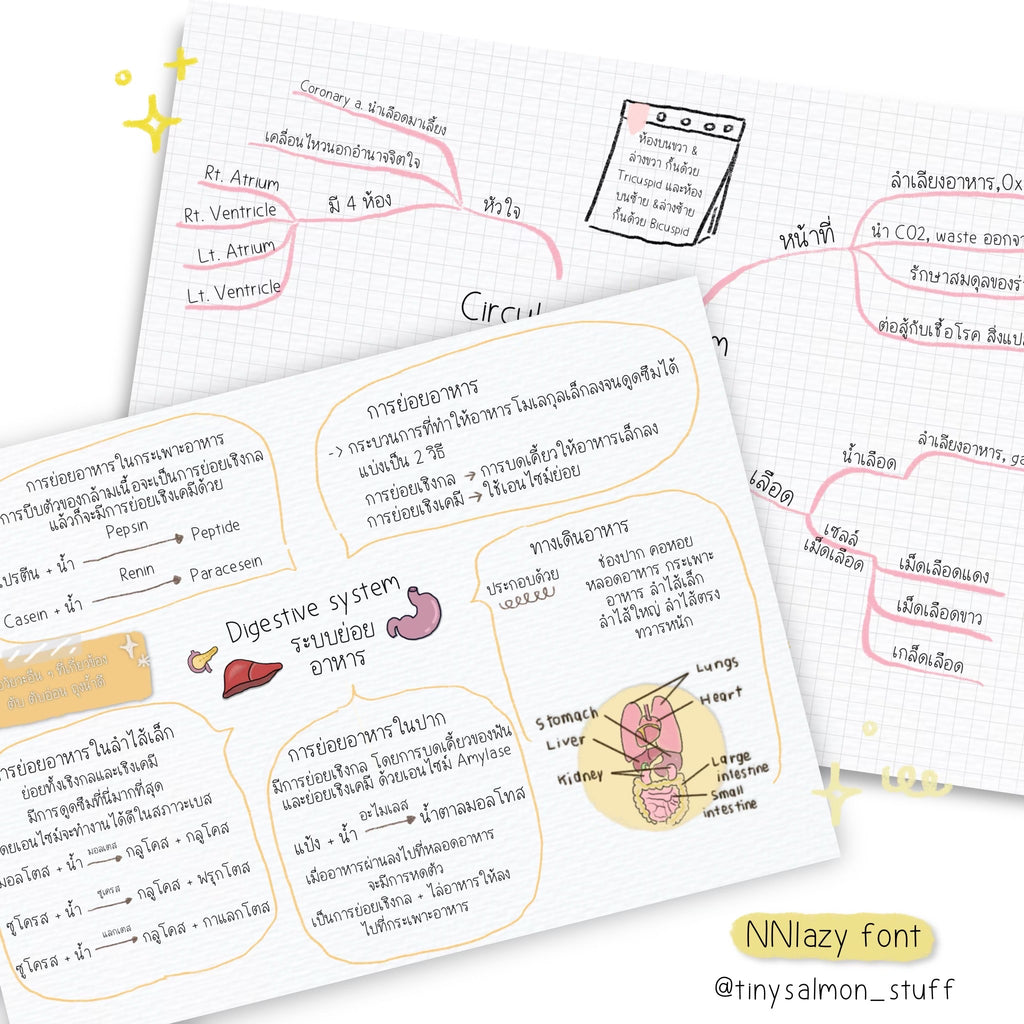 Coronary a. นำเลือดมาเลี้ยง
เคลื่อนไหวนอกอำนาจจิตใจ
Rt. Atrium
Rt. Ventricle
Lt. Atrium
Lt. Ventricle
มี 4 ห้อง
หัวใจ
ห้องบนขวา &
ล่างขวา กั้นด้วย
Tricuspid และห้อง
บนซ้าย &ล่างซ้าย
กั้นด้วย Bicuspid
หน้าที่
ลำเลียงอาหาร,Ox
นำ CO2, waste ออกจา
รักษาสมดุลของร่
ต่อสู้กับเชื้อโรค สิ่งแปล
Circul
m
เลือด
น้ำเลือด
ลำเลียงอาหาร, ga
เซลล์
เม็ดเลือด
เม็ดเลือดแดง
เม็ดเลือดขาว
เกล็ดเลือด
การย่อยอาหาร
-> กระบวนการที่ทำให้อาหารโมเลกุลเล็กลงจนดูดซึมได้
แบ่งเป็น 2 วิธี
การย่อยเชิงกล → การบดเคี้ยวให้อาหารเล็กลง
การย่อยเชิงเคมี → ใช้เอนไซม์ย่อย
การย่อยอาหารในกระเพาะอาหาร
การบีบตัวของกล้ามเนื้อจะเป็นการย่อยเชิงกล
แล้วก็จะมีการย่อยเชิงเคมีด้วย
ปรตีน + น้ำ Pepsin Peptide
Casein + น้ำ Renin Paracesein
ทางเดินอาหาร
ประกอบด้วย
ช่องปาก คอหอย
หลอดอาหาร กระเพาะ
อาหาร ลำไส้เล็ก
ลำไส้ใหญ่ ลำไส้ตรง
ทวารหนัก
Digestive system
ระบบย่อย
อาหาร
วัยวะอื่น ๆ ที่เกี่ยวข้อง
ตับ ตับอ่อน ถุงน้ำดี
ารย่อยอาหารในลำไส้เล็ก
ย่อยทั้งเชิงกลและเชิงเคมี
มีการดูดซึมที่นี่มากที่สุด
ดยเอนไซม์จะทำงานได้ดีในสภาวะเบส
มอลโตส + น้ำ มอลเตส กลูโคส + กลูโคส
ซูโครส + น้ำ ซูเครส กลูโคส + ฟรุกโตส
ซูโครส + น้ำ แลกเตส กลูโคส + กาแลกโตส
การย่อยอาหารในปาก
มีการย่อยเชิงกล โดยการบดเคี้ยวของฟัน
และย่อยเชิงเคมี ด้วยเอนไซม์ Amylase
แป้ง + น้ำ อะไมเลส น้ำตาลมอลโทส
เมื่ออาหารผ่านลงไปที่หลอดอาหาร
จะมีการหดตัว
เป็นการย่อยเชิงกล + ไล่อาหารให้ลง
ไปที่กระเพาะอาหาร
Lungs
Heart
Stomach
Liver
Kidney
Large
intestine
Small
intestine
NNlazy font
@tinysalmon_stuff